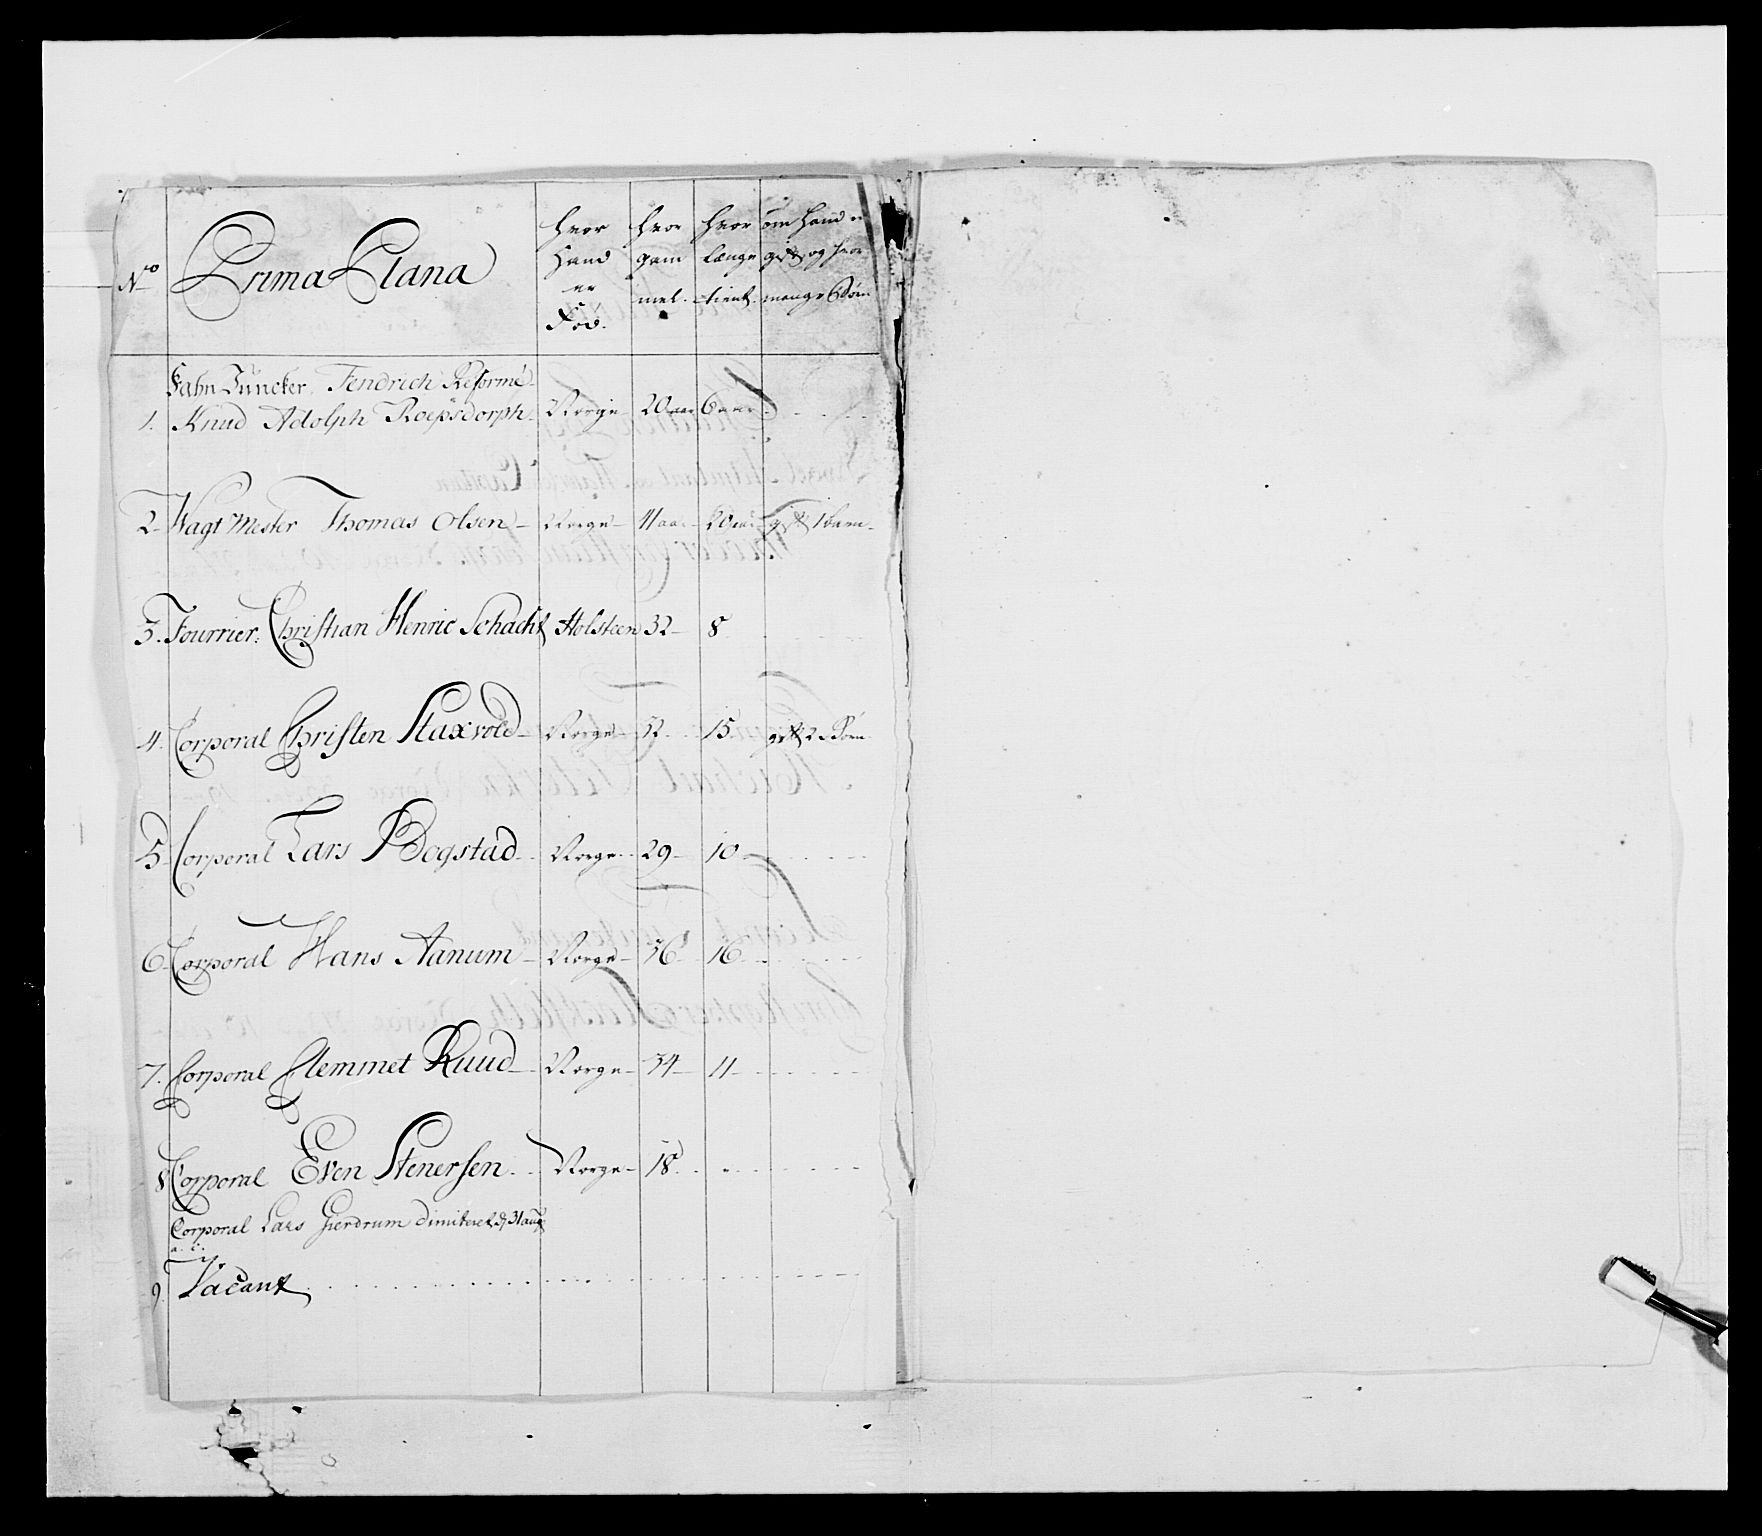 No Prima Plana hvor Hand er Fød. hvor gam mel. hvor længe tient. om Hand er gift og hvor mange Börn
Fahn Juncker. Fendrich Reformé
1. Knud Adolph Roepsdorph. Norge 20 aar 6 aar
2. Wagt Mester Thomas Olsen Norge 41 aar 20 aar gift 1 barn
3. Fourrier: Christian Henric Schacht Holsteen 32 8
4. Corporal Christen Staxvold Norge 52 15 gift 2 Börn
5. Corporal Lars Bogstad Norge 29 10
6. Corporal Hans Aanum Norge 36 16
7. Corporal Clemmet Ruud Norge 34 11
8 Corporal Even Stenersen Norge 18
Corporal Lars Gierdrum dimiteret d 31 aug
a. c.
9. Vacant